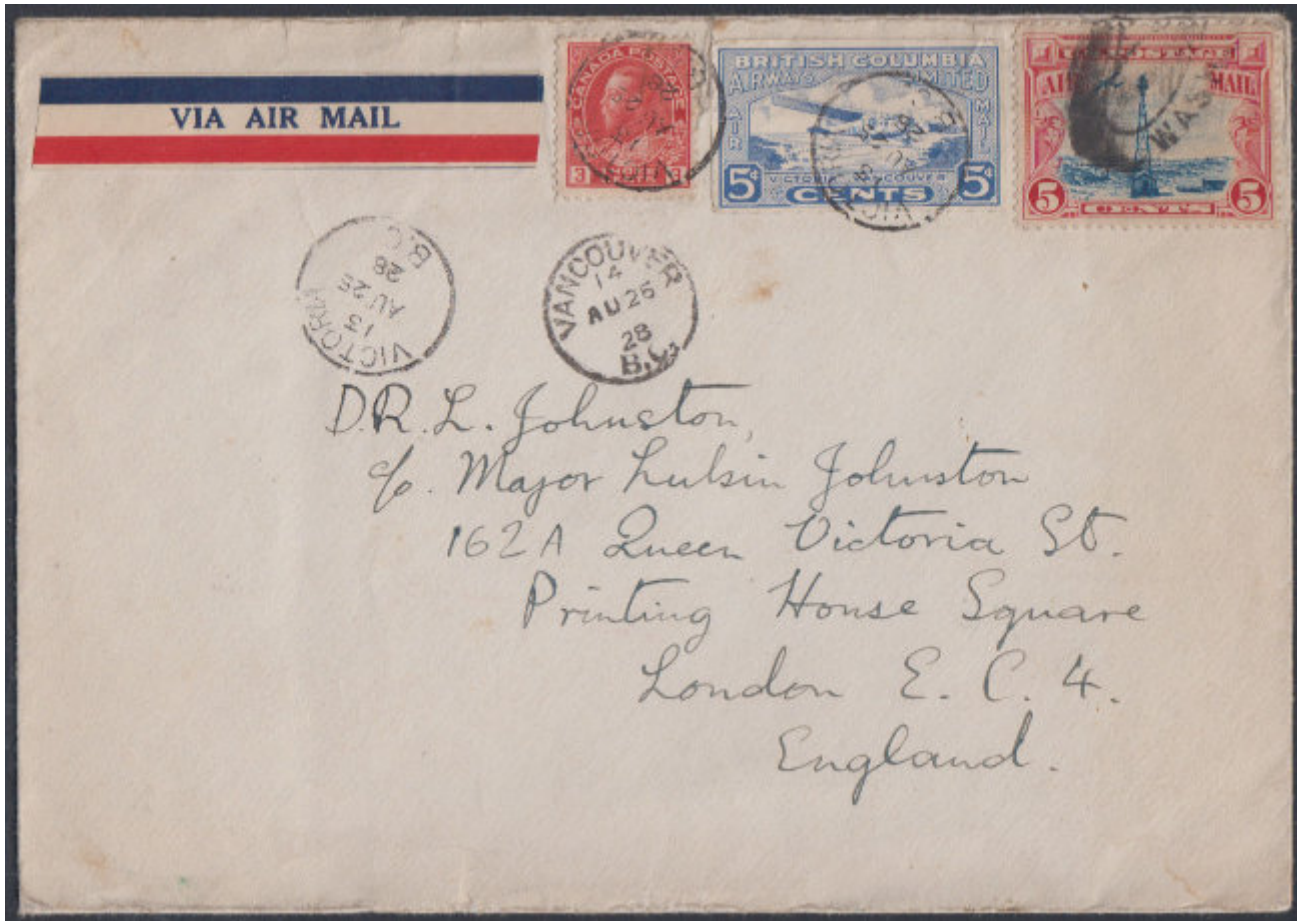 VIA AIR MAIL
CANADA POSTAGE
3 3
BRITISH COLUMBIA
AIRWAYS LIMITED
AIR MAIL
VICTORIA VANCOUVER
5¢ CENTS 5¢
AIR MAIL
WASH
5 CENTS 5
VICTORIA
13
AU 25
28
B.C.
VANCOUVER
14
AU 25
28
B.C.
D.R.L. Johnston,
c/o. Major Lukin Johnston
162A Queen Victoria St.
Printing House Square
London E. C. 4.
England.